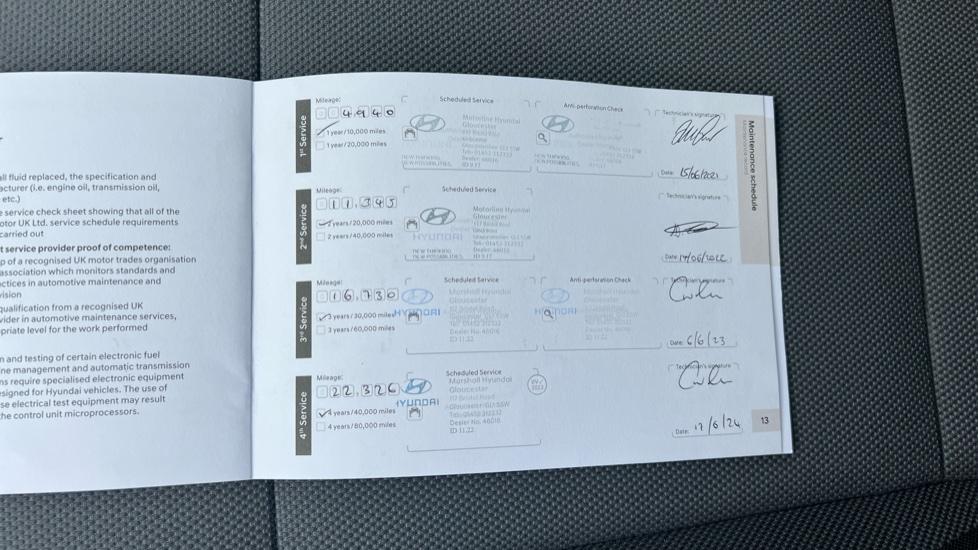 all fluid replaced, the specification and
acturer (i.e. engine oil, transmission oil,
etc.)
e service check sheet showing that all of the
otor UK Ltd. service schedule requirements
carried out
t service provider proof of competence:
p of a recognised UK motor trades organisation
association which monitors standards and
ctices in automotive maintenance and
vision
qualification from a recognised UK
vider in automotive maintenance services,
priate level for the work performed
n and testing of certain electronic fuel
ne management and automatic transmission
ns require specialised electronic equipment
signed for Hyundai vehicles. The use of
se electrical test equipment may result
he control unit microprocessors.
Maintenance schedule
1st Service
Mileage:
4940
1 year/10,000 miles
1 year/20,000 miles
Scheduled Service
Motorline Hyundai
Gloucester
NEW THINKING.
NEW POSSIBILITIES.
Anti-perforation Check
Technician's signature
Date: 15/06/2021
2nd Service
Mileage:
11,345
2 years/20,000 miles
2 years/40,000 miles
Scheduled Service
HYUNDAI
NEW THINKING.
NEW POSSIBILITIES.
Motorline Hyundai
Gloucester
Technician's signature
Date: 17/06/2022
3rd Service
Mileage:
16,730
3 years/30,000 miles
3 years/60,000 miles
Scheduled Service
HYUNDAI
Marshall Hyundai
Gloucester
Dealer No. 46016
ID 11.22
Anti-perforation Check
HYUNDAI
Technician's signature
Date: 6/6/23
4th Service
Mileage:
22,326
4 years/40,000 miles
4 years/80,000 miles
Scheduled Service
HYUNDAI
Marshall Hyundai
Gloucester
117 Bristol Road
Gloucester GL1 5SW
Dealer No. 46016
ID 11.22
Technician's signature
Date: 17/6/24
13